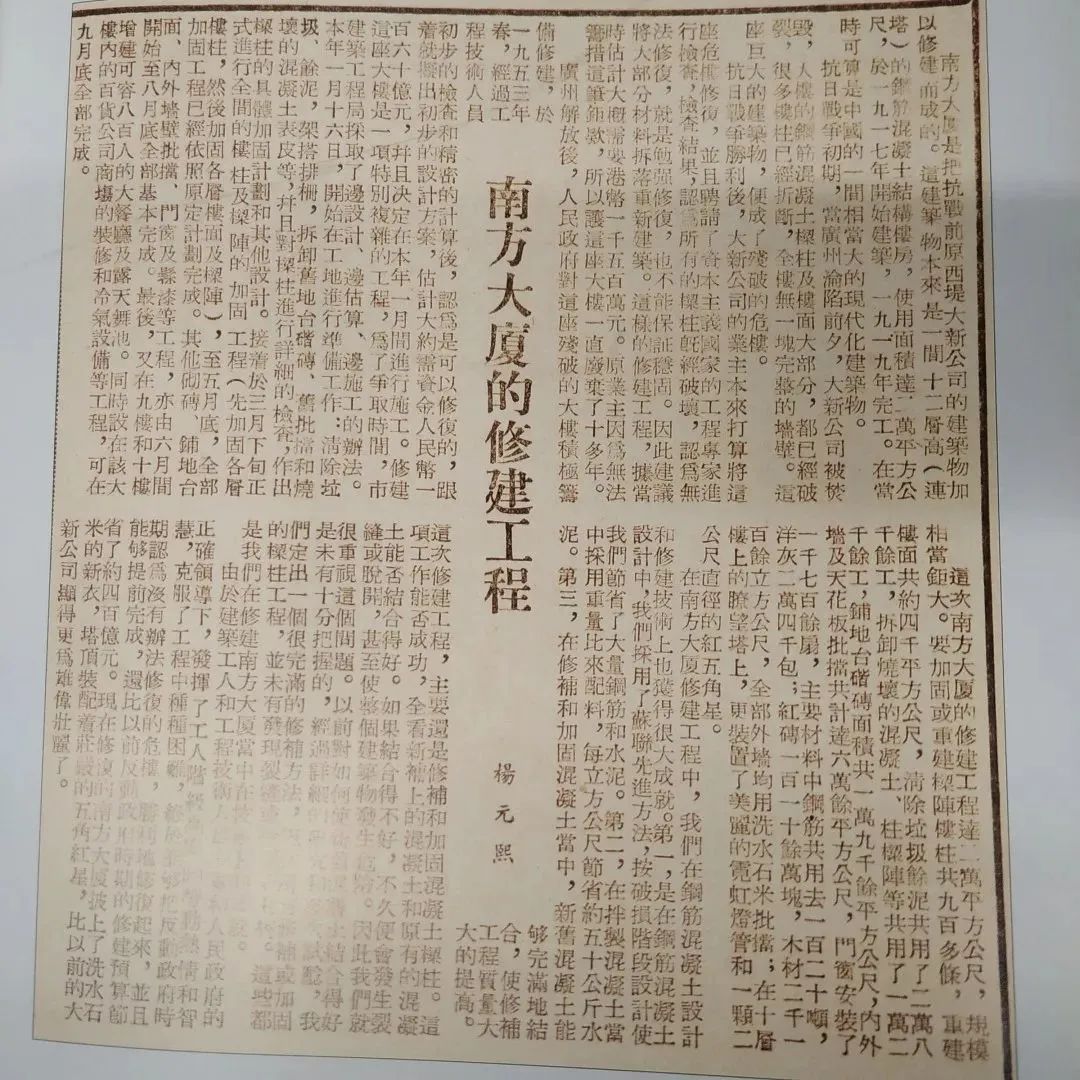 南方大厦的修建工程
楊元熙
南方大厦是把抗戰前原西堤大新公司的建築物加
以修建而成的。這建築物本來是一間十二層高（連
塔）的鋼筋混凝土結構樓房，使用面積達二萬平方公
尺，於一九一七年開始建築，一九一九年完工。在當
時可算是中國的一間相當大的現代化建築物。
抗日戰爭初期，當廣州淪陷前夕，大新公司被焚
毀，大樓的鋼筋混凝土樑柱及樓面大部分，都已經破
裂，很多樓柱已經折斷，全樓無一塊完整的墻壁。這
座巨大的建築物，便成了殘破的危樓。
抗日戰爭勝利後，大新公司的業主本來打算將這
座危樓修復，並且聘請了資本主義國家的工程專家進
行檢查，檢查結果，認爲所有的樑柱旣經破壞，認爲無
法修復，就是勉強修復，也不能保証穩固。因此建議
將大部分材料拆落重新建築。這樣的修建工程，據當
時估計大概需要港幣一千五百萬元。原業主因爲無法
籌措這筆鉅款，所以讓這座大樓一直廢棄了十多年。
廣州解放後，人民政府對這座殘破的大樓積極籌
備修建，於
一九五三年
春，經過工
程技術人員
初步的檢查和精密的計算後，認爲是可以修復的，跟
着就擬出初步的設計方案，估計大約需資金人民幣一
百六十億元，幷且決定在本年一月間進行施工。修建
這座大樓是一項特別複雜的工程，爲了爭取時間，市
建築工程局採取了邊設計、邊估算、邊施工的辦法。
本年一月十六日，開始在工地進行準備工作：清除垃
圾、餘泥，架搭排栅，拆卸舊地台磚、舊批擋和燒
壞的混凝土表皮等，幷且對樑柱進行詳細的檢查，作出
樑柱的具體加固計劃和其他設計。接着於三月下旬正
式進行全間的樓柱及樑陣的加固工程（先加固各層
樓柱，然後加固各層樓面及樑陣），至五月底，全部
加固工程已經依照原定計劃完成。其他砌磚、鋪地台
面、內外墻壁批擋、門窗及髹漆等工程，亦由六月間
開始至八月底全部基本完成。最後，又在九樓和十樓
增建可容八百人的大餐廳及露天舞池。同時設在該大
樓內的百貨公司商場的裝修和冷氣設備等工程，可在
九月底全部完成。
這次南方大厦的修建工程達二萬平方公尺，規模
相當鉅大。要加固或重建樑陣樓柱共九百多條，重建
樓面共約四千平方公尺，清除垃圾餘泥共用了二萬八
千餘工，拆卸燒壞的混凝土、柱樑陣等共用了一萬二
千餘工，鋪地台磚面積共一萬九千餘平方公尺，內外
墻及天花板批擋共計達六萬餘平方公尺，門窗安裝了
一千七百餘扇，主要材料中鋼筋共用去一百二十噸，
洋灰二萬四千包；紅磚一百一十餘萬塊，木材二千一
百餘立方公尺，全部外墻均用洗水石米批擋；在十層
樓上的瞭望塔上，更裝置了美麗的霓虹燈管和一顆二
公尺直徑的紅五角星。
在南方大厦修建工程中，我們在鋼筋混凝土設計
和修建技術上也獲得很大成就。第一，是在鋼筋混凝土
設計中，我們採用了蘇聯先進方法，按破損階段設計使
我們節省了大量鋼筋和水泥。第二，在拌製混凝土當
中採用重量比來配料，每立方公尺節省約五十公斤水
泥。第三，在修補和加固混凝土當中，新舊混凝土能
够完滿地結
合，使修補
工程質量大
大的提高。
這次修建工程，主要還是修補和加固混凝土樑柱。這
項工作能否成功，全看新補上的混凝土和原有的混凝
土能否結合得好。如果結合得不好，不久便會發生裂
縫或脫開，甚至使整個建築物發生危險。因此我們就
很重視這個問題。以前對如何使新舊混凝土結合得好
是未有十分把握的，經過詳細的研究和試驗，我
們定出一個很完滿的修補方法，補或加固
的樑柱工程，並未有發現裂縫這些都
是我們在修建南方大厦當中在技術上
由於建築工人和工程技術人員在人民政府的
正確領導下，發揮了工人階級熱情和智
慧，克服了工程中種種困難，終於能够把反動政府時
期認爲沒有辦法修復的危樓，勝利地修復起來，並且
能够提前完成，還比以前反動政府時期的修建預算節
省了約四百億元。現在修復的南方大厦披上了洗水石
米的新衣，塔頂裝配着莊嚴的五角紅星，比以前的大
新公司顯得更爲雄偉壯麗了。